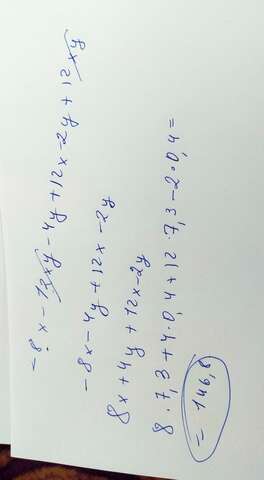 -8x-12xy-4y+12x-2y+12xy
-8x-4y+12x-2y
8x+4y+12x-2y
8·7,3+4·0,4+12·7,3-2·0,4=
=146,8